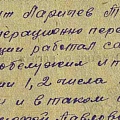 ут Ларичев Т
перационно пере
ции работал са
обслужил и т
ии 1, 2 числа
и и в таком с